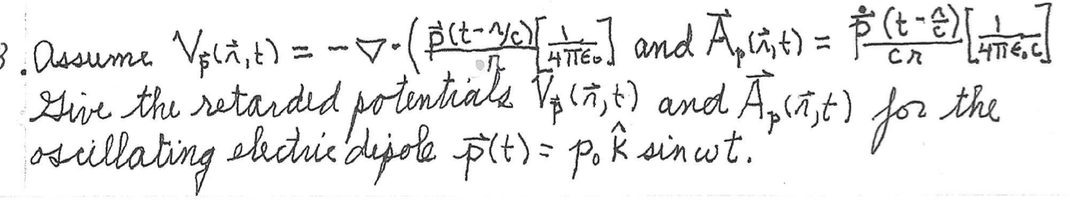 3. Assume V_p⃗(r⃗,t) = -∇·(p⃗(t-r/c)/r [1/4πε₀]) and A⃗_p(r⃗,t) = p⃗̇(t-r/c)/cr [1/4πε₀c]
Give the retarded potentials V_p⃗(r⃗,t) and A⃗_p(r⃗,t) for the
oscillating electric dipole p⃗(t) = p₀ k̂ sin ωt.